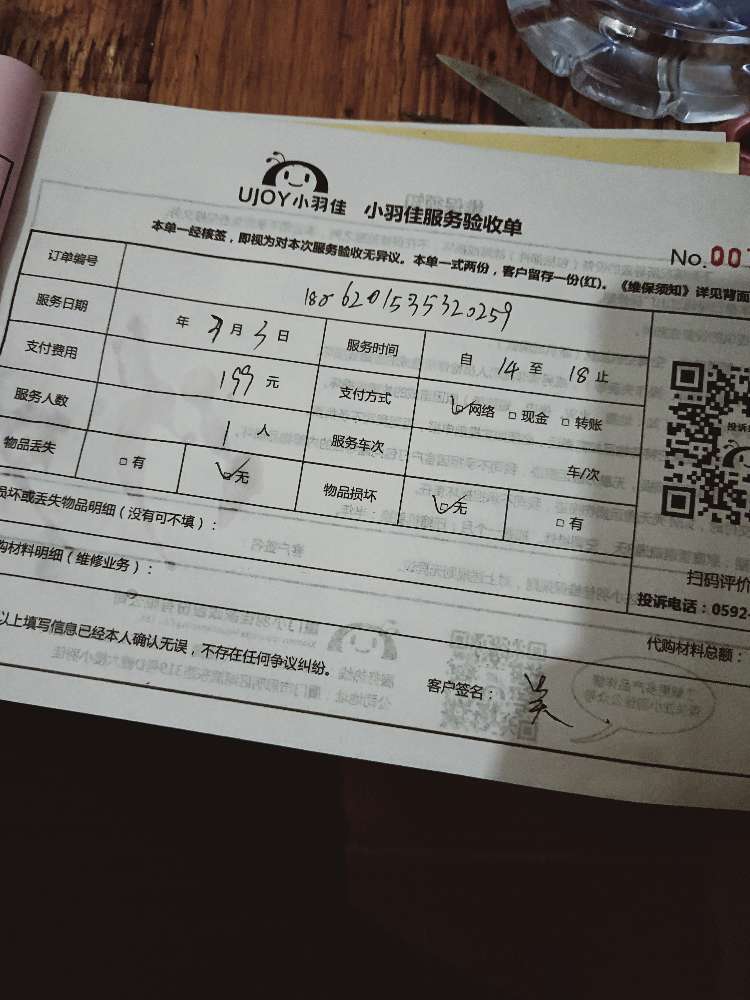 UJOY小羽佳 小羽佳服务验收单
No.00
本单一经核签，即视为对本次服务验收无异议。本单一式两份，客户留存一份(红)。《维保须知》详见背面
订单编号 1806201535320259
服务日期 年 7月 3日 服务时间 自 14 至 18 止
支付费用 199 元 支付方式 ☑网络 □现金 □转账
服务人数 1 人 服务车次 车/次
物品丢失 □有 ☑无 物品损坏 ☑无 □有
损坏或丢失物品明细（没有可不填）：
购材料明细（维修业务）：
投诉
扫码评价
投诉电话：0592-
代购材料总额：
以上填写信息已经本人确认无误，不存在任何争议纠纷。
客户签名：